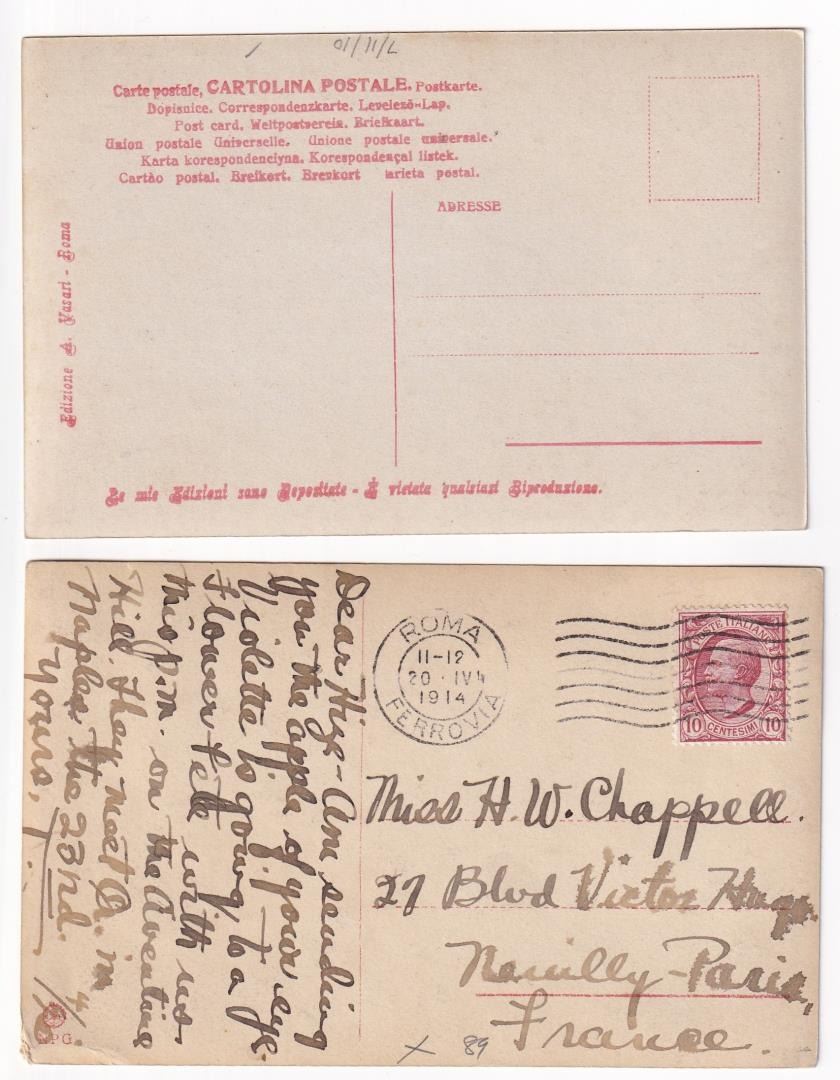 01/11/L
Carte postale, CARTOLINA POSTALE. Postkarte.
Dopisnice. Correspondenzkarte. Levelezö-Lap.
Post card. Weltpostverein. Briefkaart.
Union postale Universelle. Unione postale universale.
Karta korespondencyjna. Korespondençal listek.
Cartão postal. Brefkort. Brevkort tarieta postal.
ADRESSE
Edizione A. Vasari - Roma
Le mie Edizioni sono Depositate - È vietata qualsiasi Riproduzione.
Dear Hize - Am sending
you the apple of your eye.
Violette is going to a
Flower Fete with us
this p.m. on the Aventine
Hill. They meet A. in
Naples the 23rd.
Yours,
NPG
ROMA
11-12
20 · IV
1914
FERROVIA
POSTE ITALIANE
10 CENTESIMI 10
Miss H. W. Chappell.
27 Blvd Victor Hugo
Neuilly-Paris,
France.
x 89